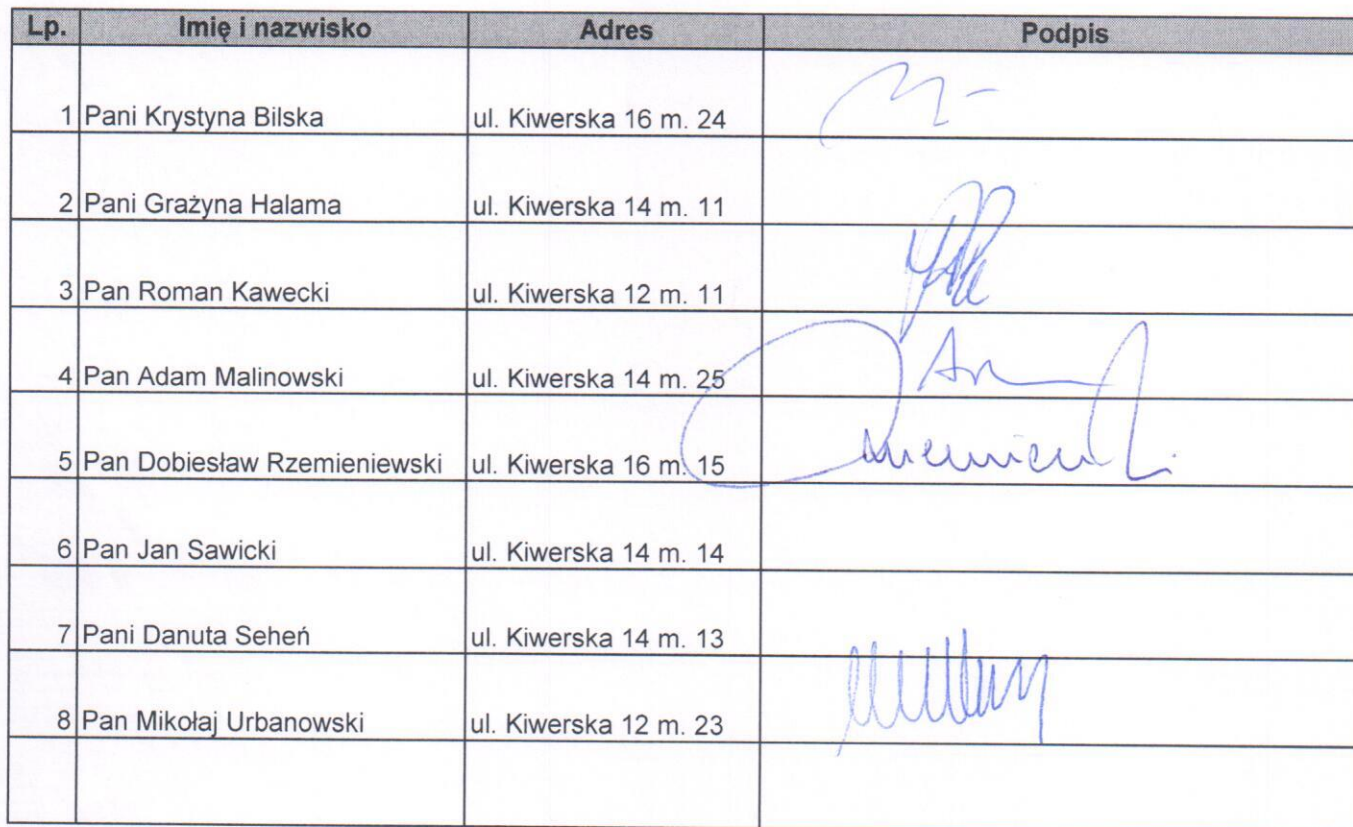 Lp. Imię i nazwisko Adres Podpis
1 Pani Krystyna Bilska ul. Kiwerska 16 m. 24
2 Pani Grażyna Halama ul. Kiwerska 14 m. 11
3 Pan Roman Kawecki ul. Kiwerska 12 m. 11
4 Pan Adam Malinowski ul. Kiwerska 14 m. 25
5 Pan Dobiesław Rzemieniewski ul. Kiwerska 16 m. 15
6 Pan Jan Sawicki ul. Kiwerska 14 m. 14
7 Pani Danuta Seheń ul. Kiwerska 14 m. 13
8 Pan Mikołaj Urbanowski ul. Kiwerska 12 m. 23